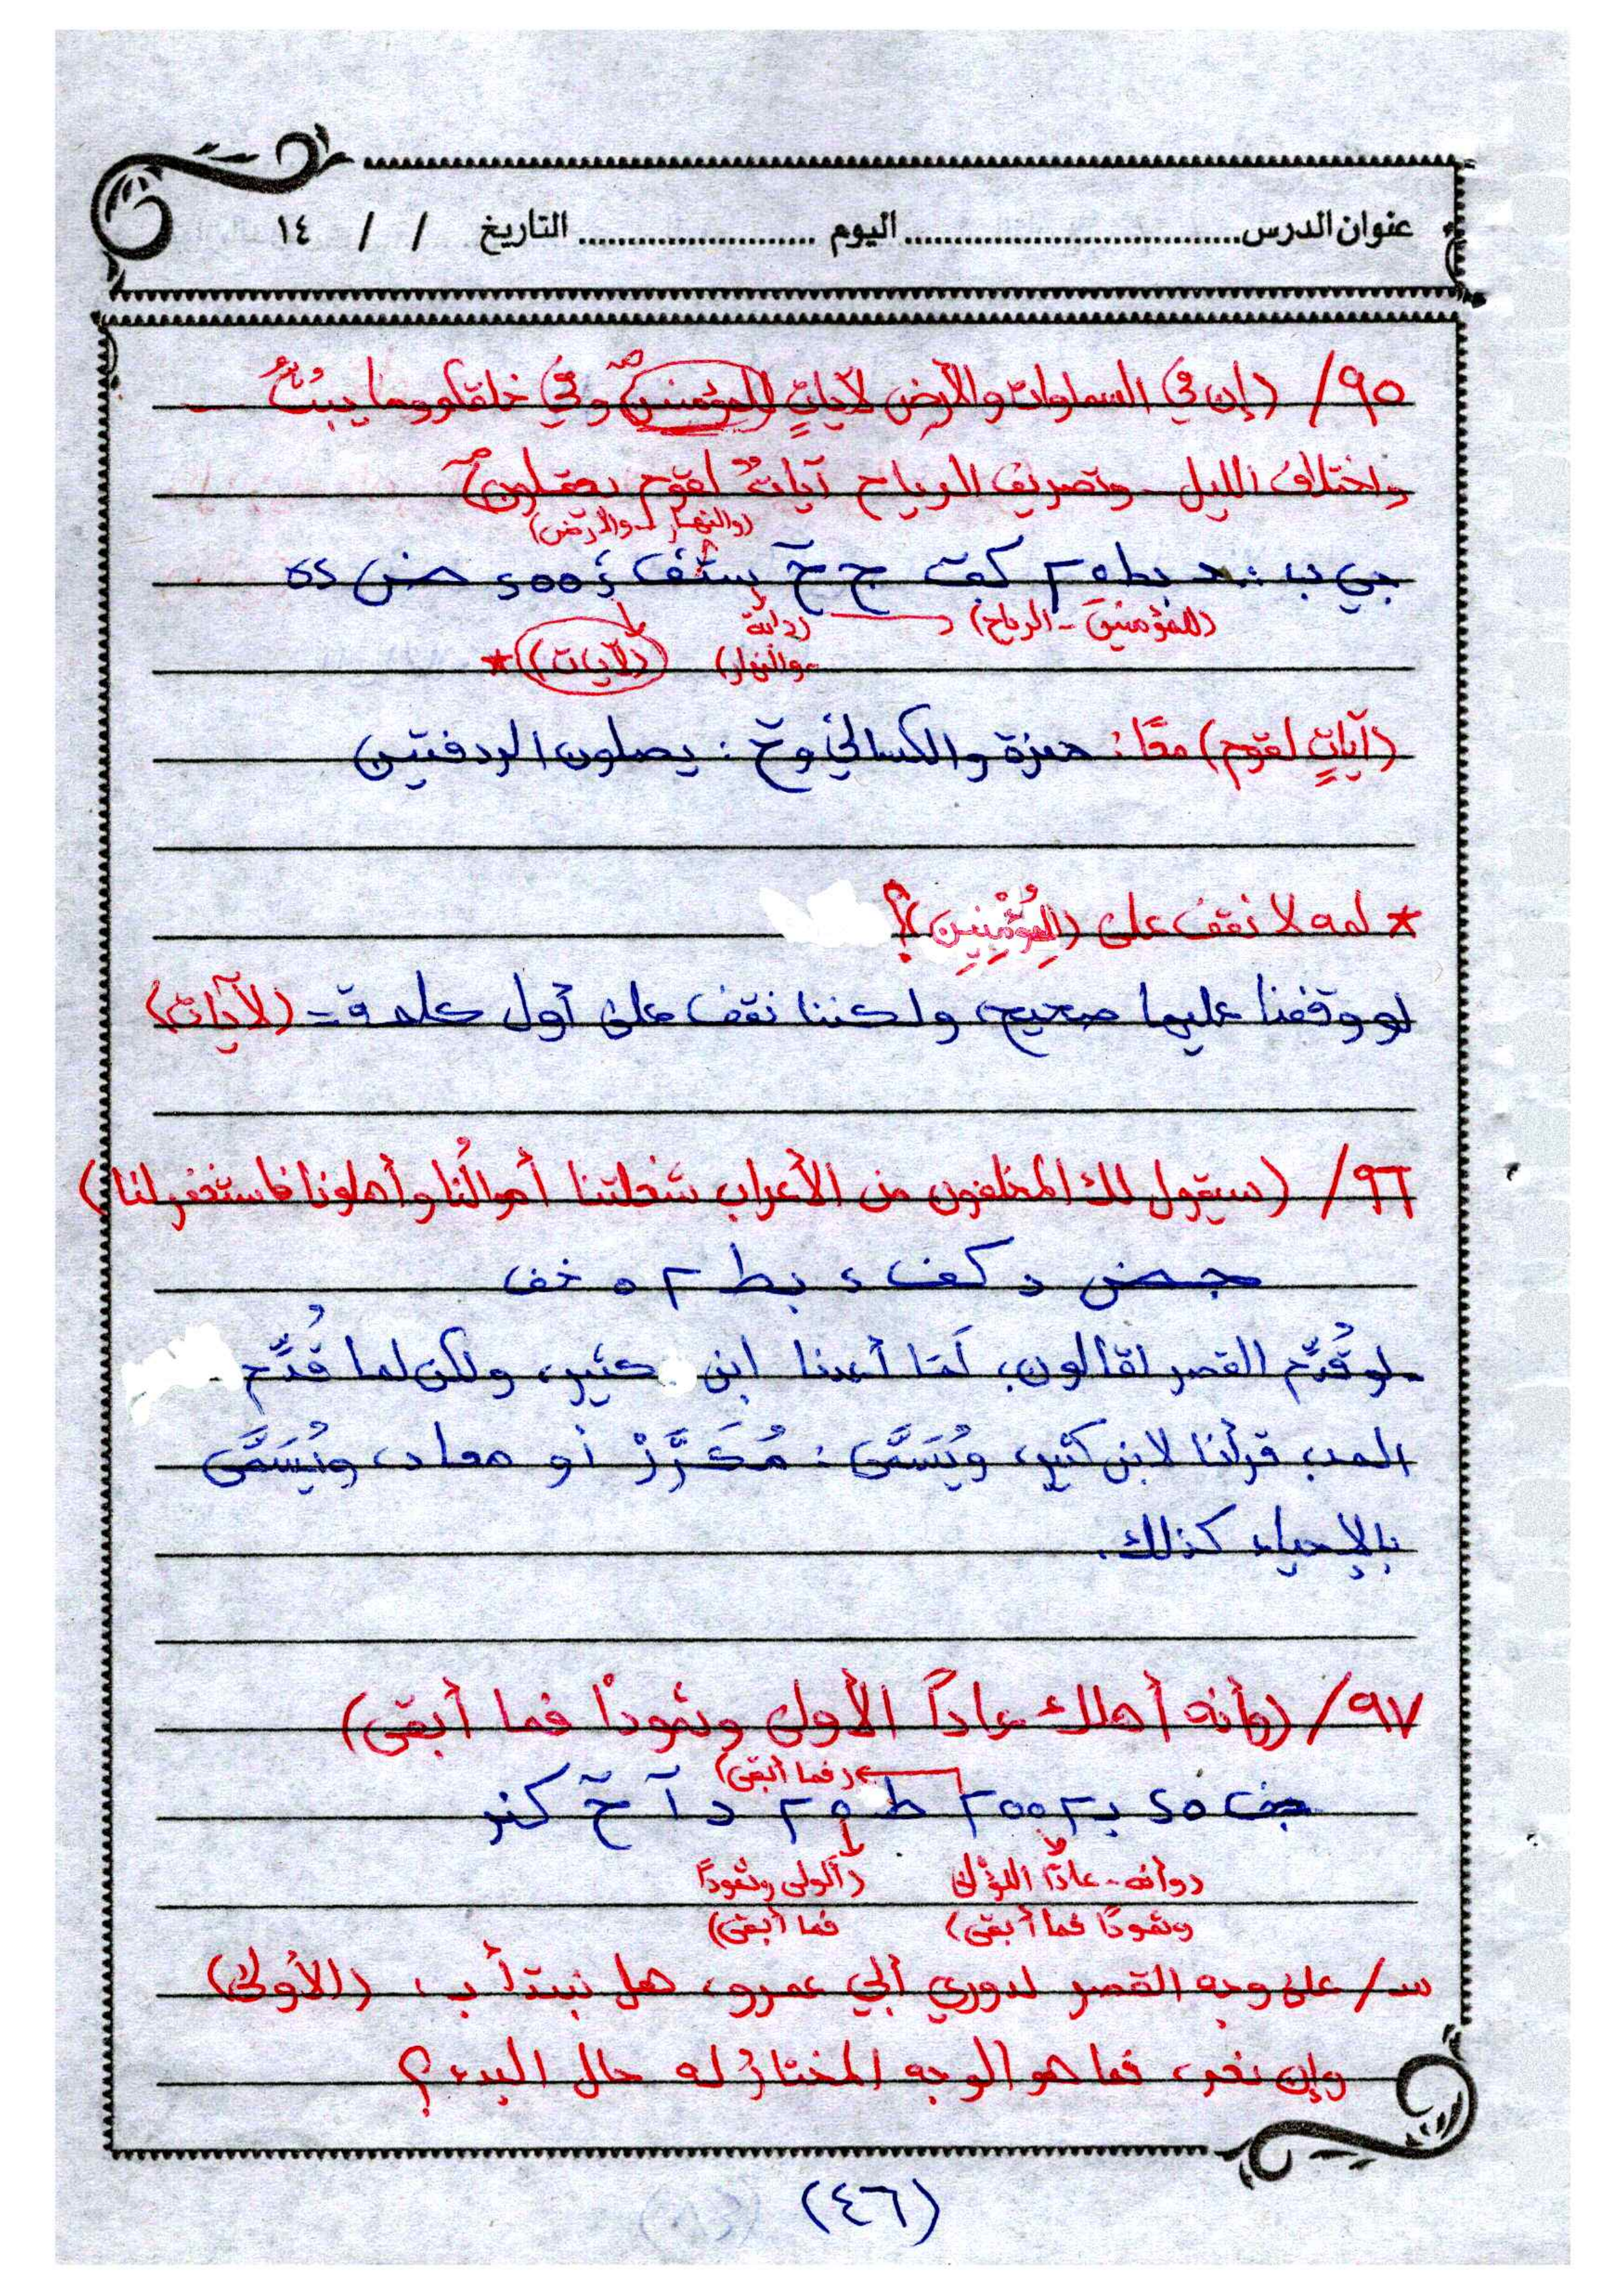 عنوان الدرس................................ اليوم ........................ التاريخ / / ١٤
٩٥/ (إن في السماوات والأرض لآياتٍ للمؤمنين وفي خلقكم وما يبثُّ
واختلاف الليل - وتصريف الرياح آياتٌ لقوم يعقلون)
(والنهار - والأرض)
(للمؤمنين - الرياح)
(دابة
والنهار)
(لآيات) *
(آياتٍ لقوم) معًا: حمزة والكسائي و خ : يصلون الردفتين
* لمه لا نقف على (للمُؤْمِنِين)؟
لو وقفنا عليها صحيح، ولكننا نقف على أول كلمة = (لآيات)
٩٦/ (سيقول لك المخلفون من الأعراب شغلتنا أموالُنا وأهلونا فاستغفر لنا)
لو قُدِّم القصر لقالون، لَمَا أعدنا ابن كثير، ولكن لما قُدِّم
المد، قرأنا لابن كثير، ويُسَمَّى: مُكَرَّرْ أو معاد، ويُسَمَّى
بالإحياء كذلك.
٩٧/ (وأنه أهلك عاداً الأولى وثمودًا فما أبقى)
(فما أبقى)
(وأنه - عادًا اللُّؤْلى
وثمودًا فما أبقى)
(ألولى وثمودًا
فما أبقى)
س/ على وجه القصر لدوري أبي عمرو، هل نبتدأ ب، (الأولى)
وإن نعم، فما هو الوجه المختار له حال البدء؟
(٤٦)